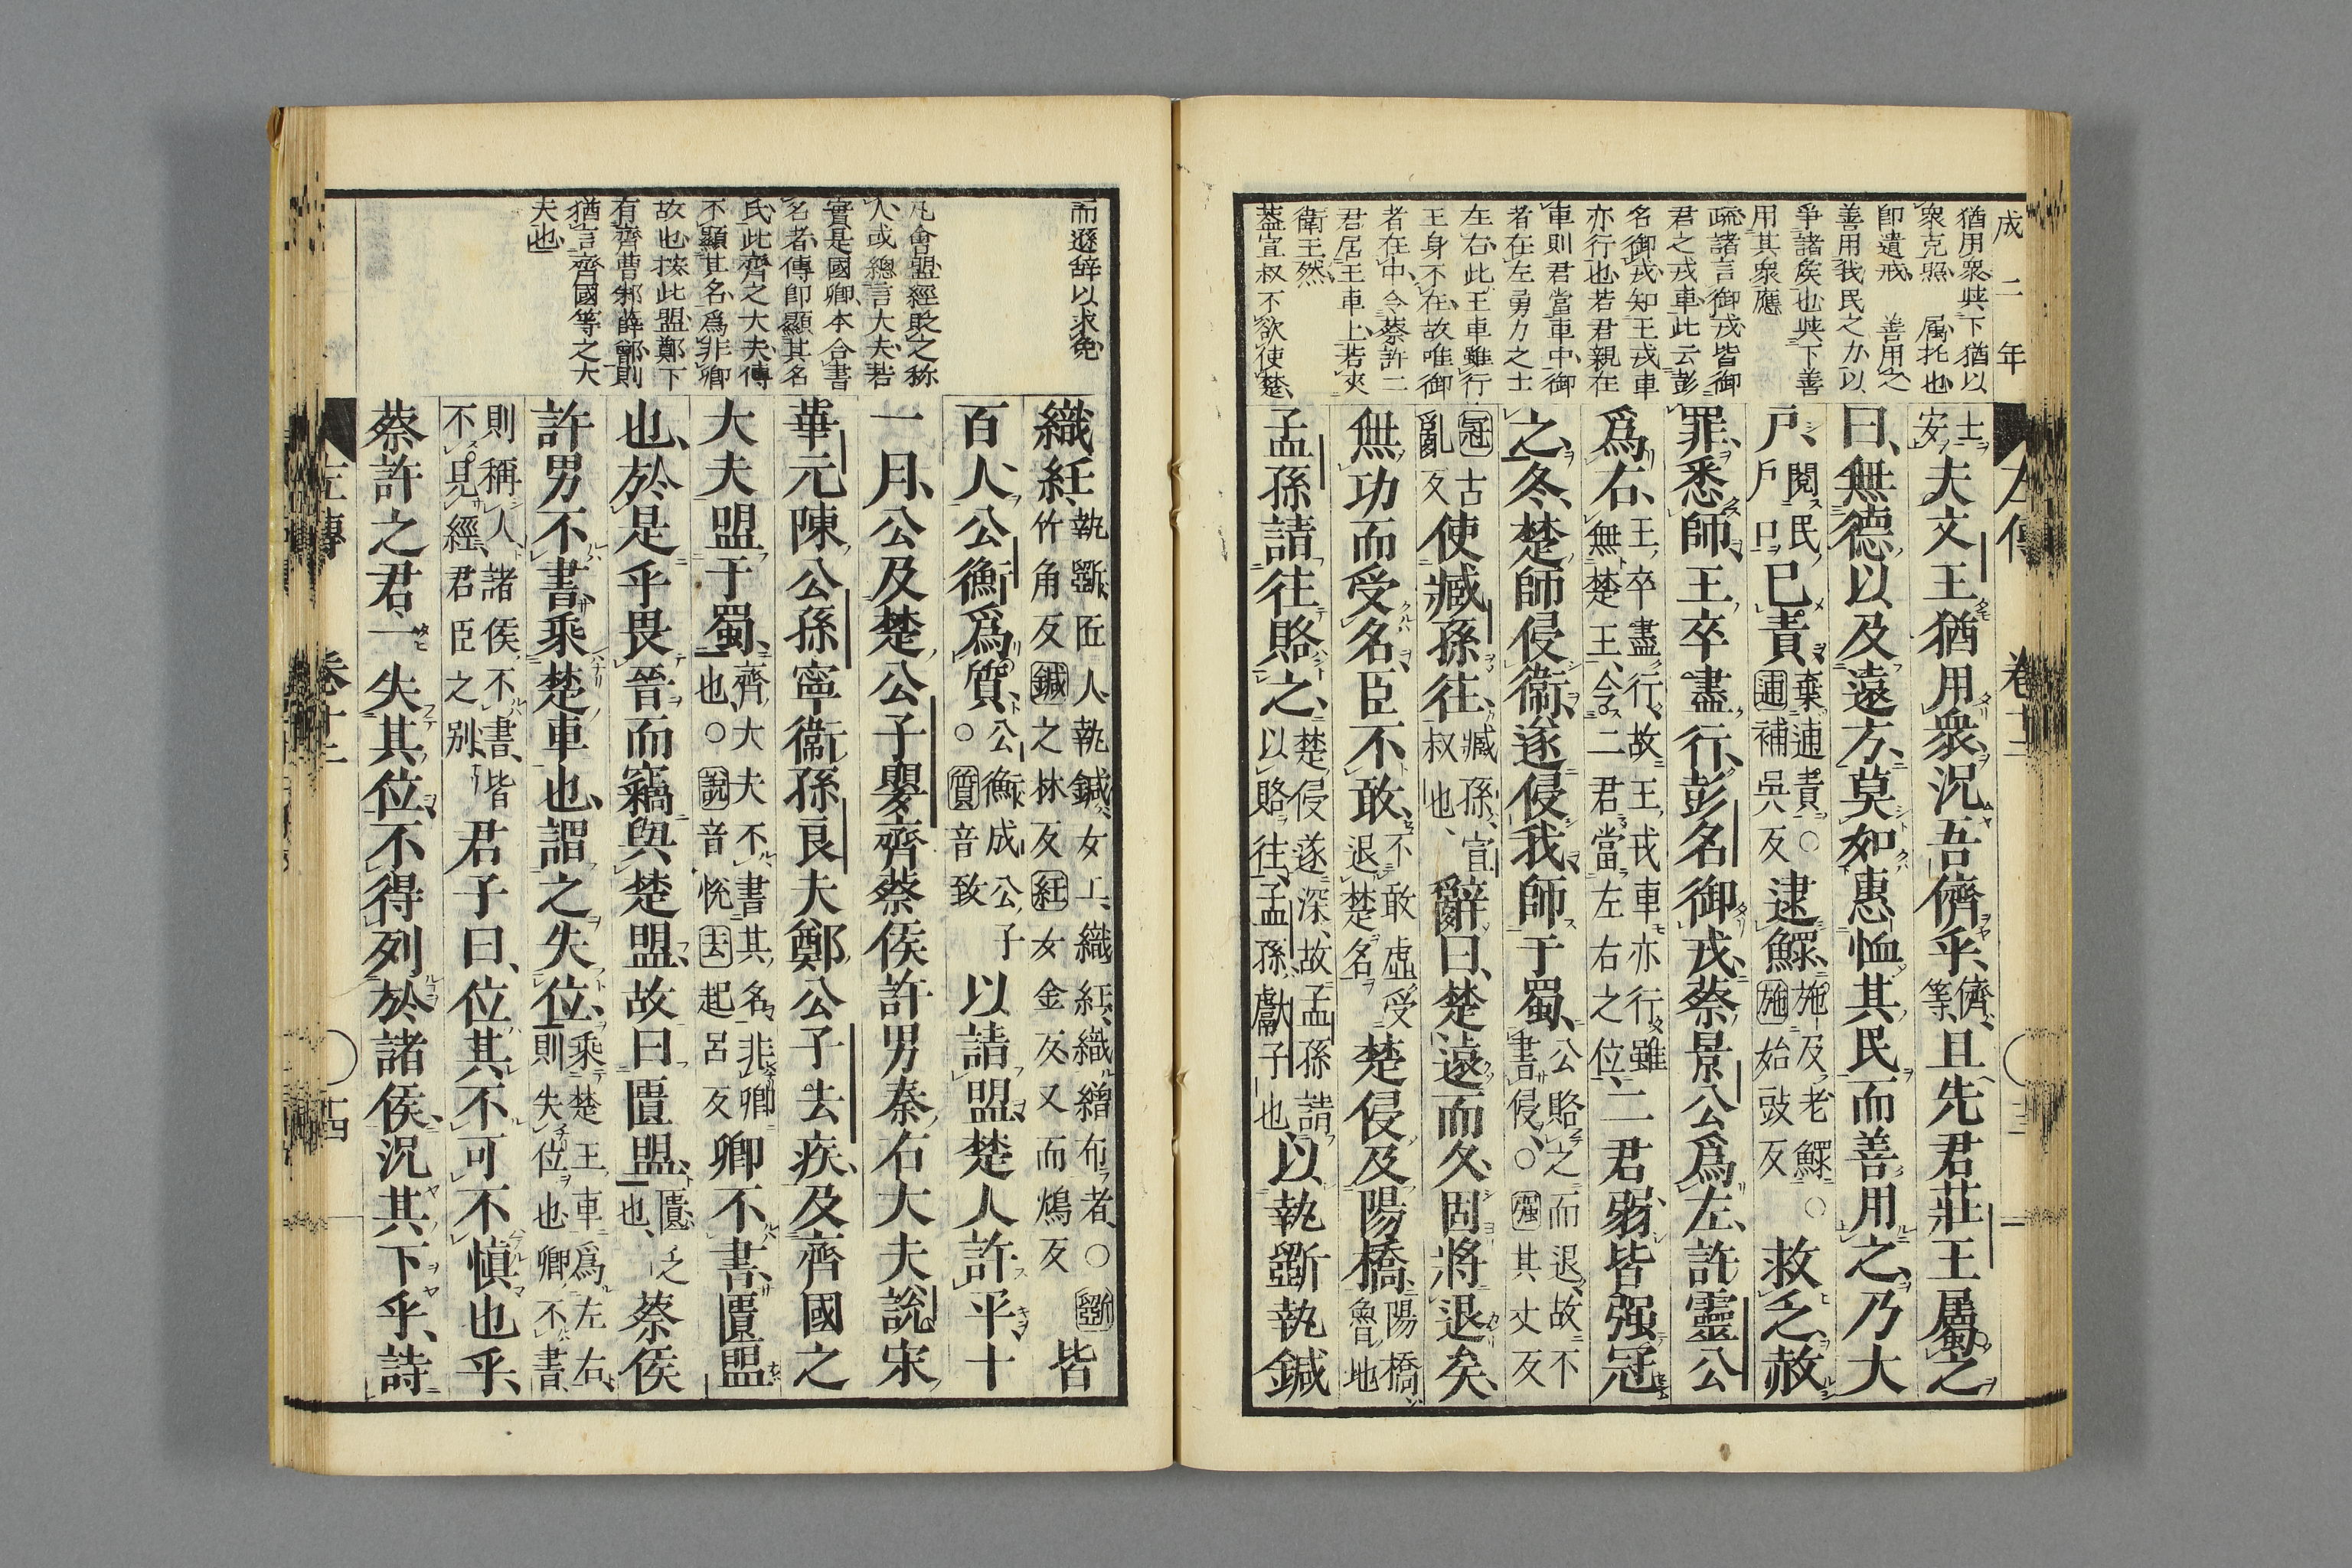 成二年
猶用衆與下猶以
衆克照　属托也
即遺戒　善用之
善用我民之力以
爭諸矦也與下善
用其衆應
疏諸言御戎皆御
君之戎車此云彭
名御戎知王戎車
亦行也若君親在
車則君當車中御
者在左勇力之士
在右此王車雖行
王身不在故唯御
者在中令蔡許二
君居王車上若夾
衛王然
蓋宣叔不欲使楚
士安夫文王猶用衆況吾儕乎儕等且先君莊王屬之
曰無德以及遠方莫如惠恤其民而善用之乃大
戸閱民戸口已責棄逋責○逋補吳反逮鰥施及老鰥○施始豉反救乏赦
罪悉師王卒盡行彭名御戎蔡景公爲左許靈公
爲右王卒盡行故王戎車亦行雖無楚王令二君當左右之位二君弱皆强冠
之冬楚師侵衞遂侵我師于蜀公賂之而退故不書侵○强其丈反
冠古亂反使臧孫往臧孫宣叔也辭曰楚遠而久固將退矣
無功而受名臣不敢不敢虛受退楚名楚侵及陽橋陽橋魯地
孟孫請往賂之楚侵遂深故孟孫請以賂往孟孫獻子也以執斲執鍼
而遜辞以求免
凡會盟經貶之称
人或總言大夫若
實是國卿本合書
名者傳即顯其名
氏此齊之大夫傳
不顯其名爲非卿
故也按此盟鄭下
有齊曹邾薛鄫則
猶言齊國等之大
夫也
織紝執斲匠人執鍼女工織紝織繒布者○斲竹角反鍼之林反紝女金反又而鴆反皆
百人公衡爲質公衡成公子○質音致以請盟楚人許平十
一月公及楚公子嬰齊蔡侯許男秦右大夫說宋
華元陳公孫寧衞孫良夫鄭公子去疾及齊國之
大夫盟于蜀齊大夫不書其名非卿也○說音悅去起呂反卿不書匱盟
也於是乎畏晉而竊與楚盟故曰匱盟匱乏也蔡侯
許男不書乘楚車也謂之失位乘楚王車爲左右則失位也卿不書
則稱人諸侯不書皆不見經君臣之別君子曰位其不可不愼也乎
蔡許之君一失其位不得列於諸侯況其下乎詩
左傳　卷十二　十四